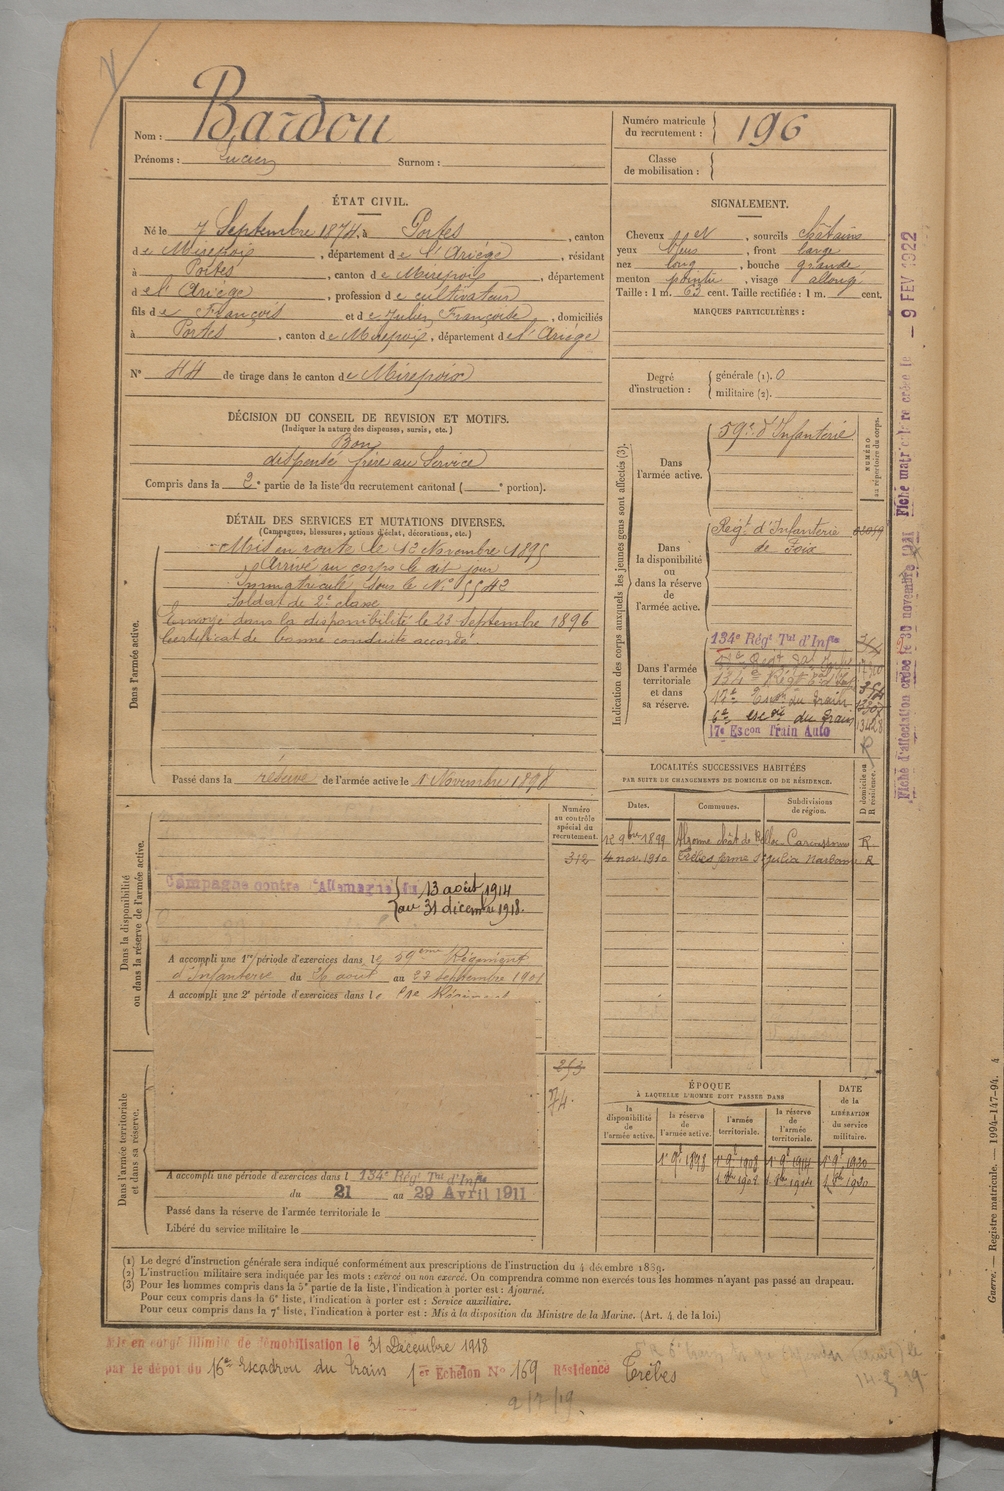 Nom : Bardou
Prénoms : Lucien Surnom :
Numéro matricule du recrutement : 196
Classe de mobilisation :
ÉTAT CIVIL.
Né le 7 Septembre 1874, à Portes, canton
de Mirepoix, département de l'Ariège, résidant
à Portes, canton de Mirepoix, département
de l'Ariège, profession de cultivateur
fils de François et de Julien Françoise, domiciliés
à Portes, canton de Mirepoix, département de l'Ariège
N° 44 de tirage dans le canton de Mirepoix
SIGNALEMENT.
Cheveux sourcils châtains
yeux , front large
nez long, bouche grande
menton pointu, visage allongé
Taille : 1 m. 63 cent. Taille rectifiée : 1 m. cent.
MARQUES PARTICULIÈRES :
Degré d'instruction : générale (1). 0
militaire (2).
DÉCISION DU CONSEIL DE REVISION ET MOTIFS.
(Indiquer la nature des dispenses, sursis, etc.)
Bon
dispensé frère au Service
Compris dans la 2e partie de la liste du recrutement cantonal ( e portion).
DÉTAIL DES SERVICES ET MUTATIONS DIVERSES.
(Campagnes, blessures, actions d'éclat, décorations, etc.)
Dans l'armée active.
Mis en route le 12 Novembre 1895
Arrivé au corps le dit jour
Immatriculé sous le N° 5542
Soldat de 2e classe
Envoyé dans la disponibilité le 23 Septembre 1896
Certificat de bonne conduite accordé.
Passé dans la réserve de l'armée active le 1 Novembre 1898
Indication des corps auxquels les jeunes gens sont affectés (3).
NUMÉRO au répertoire du corps.
Dans l'armée active.
59e d'Infanterie
Dans la disponibilité ou dans la réserve de l'armée active.
Regt d'Infanterie
de Foix
Dans l'armée territoriale et dans sa réserve.
134e Régt Tal d'Infie
134e Régt
17e Escon du Train
6e esc du train
17e Escon Train Auto
13428
R
Fiche d'affectation créée le 30 novembre Fiche matriculaire créée le – 9 FEV 1922
LOCALITÉS SUCCESSIVES HABITÉES
PAR SUITE DE CHANGEMENTS DE DOMICILE OU DE RÉSIDENCE.
Dates. Communes. Subdivisions de région. D domicile ou R résidence.
12 9bre 1899 Alzonne chât de Carcassonne R
4 nov. 1910 Trèbes ferme St Julia Narbonne R
Numéro au contrôle spécial du recrutement.
312
Dans la disponibilité ou dans la réserve de l'armée active.
Campagne contre l'Allemagne du 13 août 1914
au 31 décembre 1918.
A accompli une 1re période d'exercices dans le 59ème Régiment
d'Infanterie du 26 août au 22 septembre 1901
A accompli une 2e période d'exercices dans le
253
74
Dans l'armée territoriale et dans sa réserve.
A accompli une période d'exercices dans l 134e Rég Tal d'Infie
du 21 au 29 Avril 1911
Passé dans la réserve de l'armée territoriale le
Libéré du service militaire le
ÉPOQUE
À LAQUELLE L'HOMME DOIT PASSER DANS
la disponibilité de l'armée active. la réserve de l'armée active. l'armée territoriale. la réserve de l'armée territoriale.
DATE de la LIBÉRATION du service militaire.
1er 9bre 1898 1er 9bre 1908 1er 9bre 1914 1er 9bre 1920
(1) Le degré d'instruction générale sera indiqué conformément aux prescriptions de l'instruction du 4 décembre 1889.
(2) L'instruction militaire sera indiquée par les mots : exercé ou non exercé. On comprendra comme non exercés tous les hommes n'ayant pas passé au drapeau.
(3) Pour les hommes compris dans la 5e partie de la liste, l'indication à porter est : Ajourné.
Pour ceux compris dans la 6e liste, l'indication à porter est : Service auxiliaire.
Pour ceux compris dans la 7e liste, l'indication à porter est : Mis à la disposition du Ministre de la Marine. (Art. 4 de la loi.)
Mis en congé illimité de démobilisation le 31 Décembre 1918
par le dépôt du 16e Escadron du Train 1er Echelon N° 159 Résidence Trèbes
2/7/19.
14-8-19
Guerre. — Registre matricule. — 1994-147-94. 4